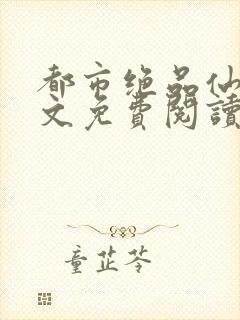 都市绝品仙
文免費閱讀
童芷苓